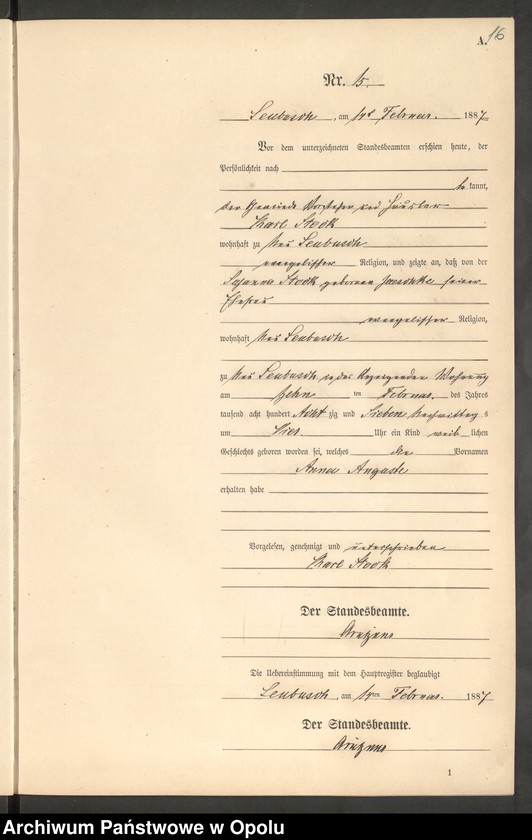 A. 16
Nr. 15.
Leubusch, am 14ten Februar. 1887
Vor dem unterzeichneten Standesbeamten erschien heute, der
Persönlichkeit nach
be kannt,
der Gemeinde Vorsteher und Häusler
Karl Stock
wohnhaft zu Neu Leubusch
evangelischer Religion, und zeigte an, daß von der
Susanna Stock geborenen seiner
Ehefrau
evangelischer Religion,
wohnhaft Neu Leubusch
zu Neu Leubusch in des Anzeigenden Wohnung
am zehn ten Februar. des Jahres
tausend acht hundert Acht zig und Sieben Nachmittag s
um Vier Uhr ein Kind weib lichen
Geschlechts geboren worden sei, welches die Vornamen
Anna Auguste
erhalten habe
Vorgelesen, genehmigt und unterschrieben
Karl Stock
Der Standesbeamte.
Die Uebereinstimmung mit dem Hauptregister beglaubigt
Leubusch, am 14ten Februar. 1887
Der Standesbeamte.
1
Archiwum Państwowe w Opolu